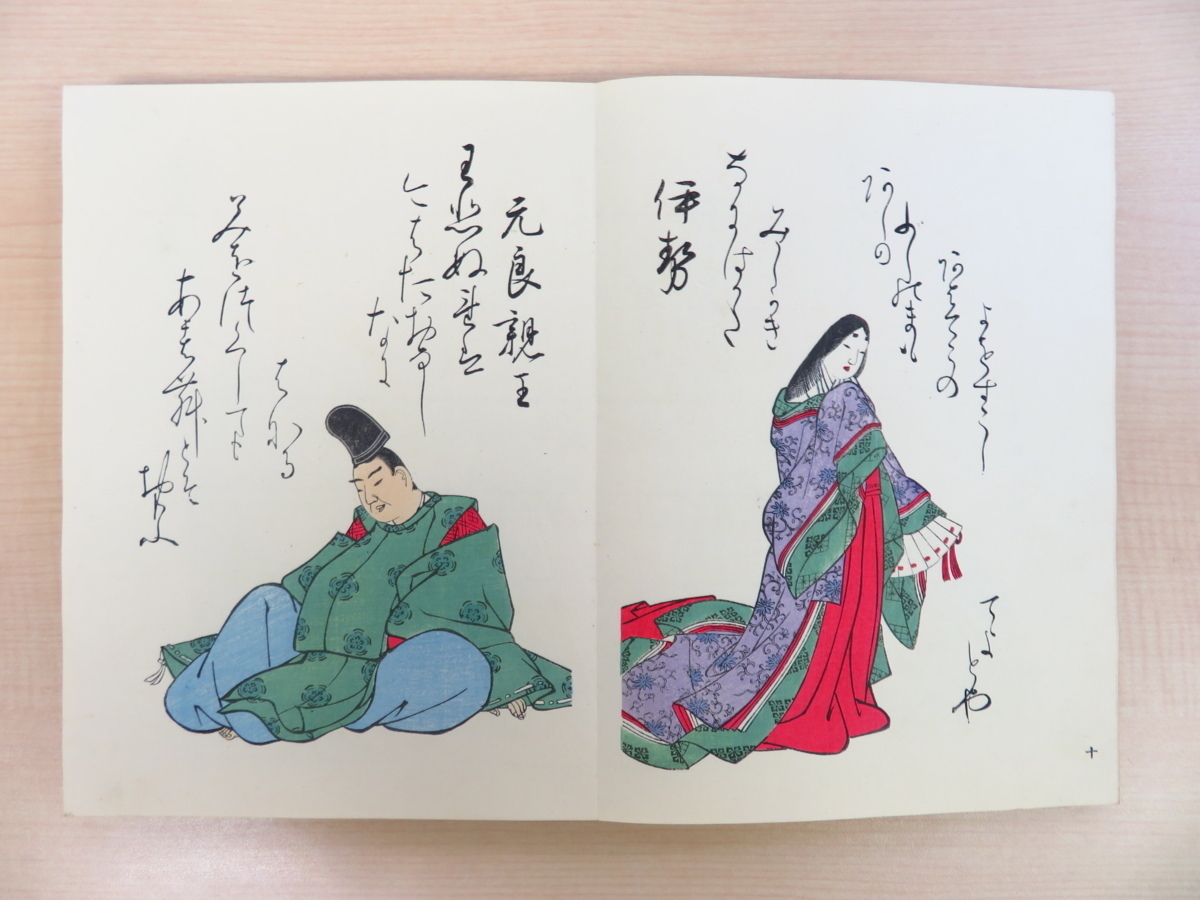 伊勢
なにはかた
みしかき
あしの
ふしのまも
あはてこの
よをすくし
てよとや
十
元良親王
わひぬれは
今はたおなし
なに
はなる
みをつくしても
あはむとそ
おもふ